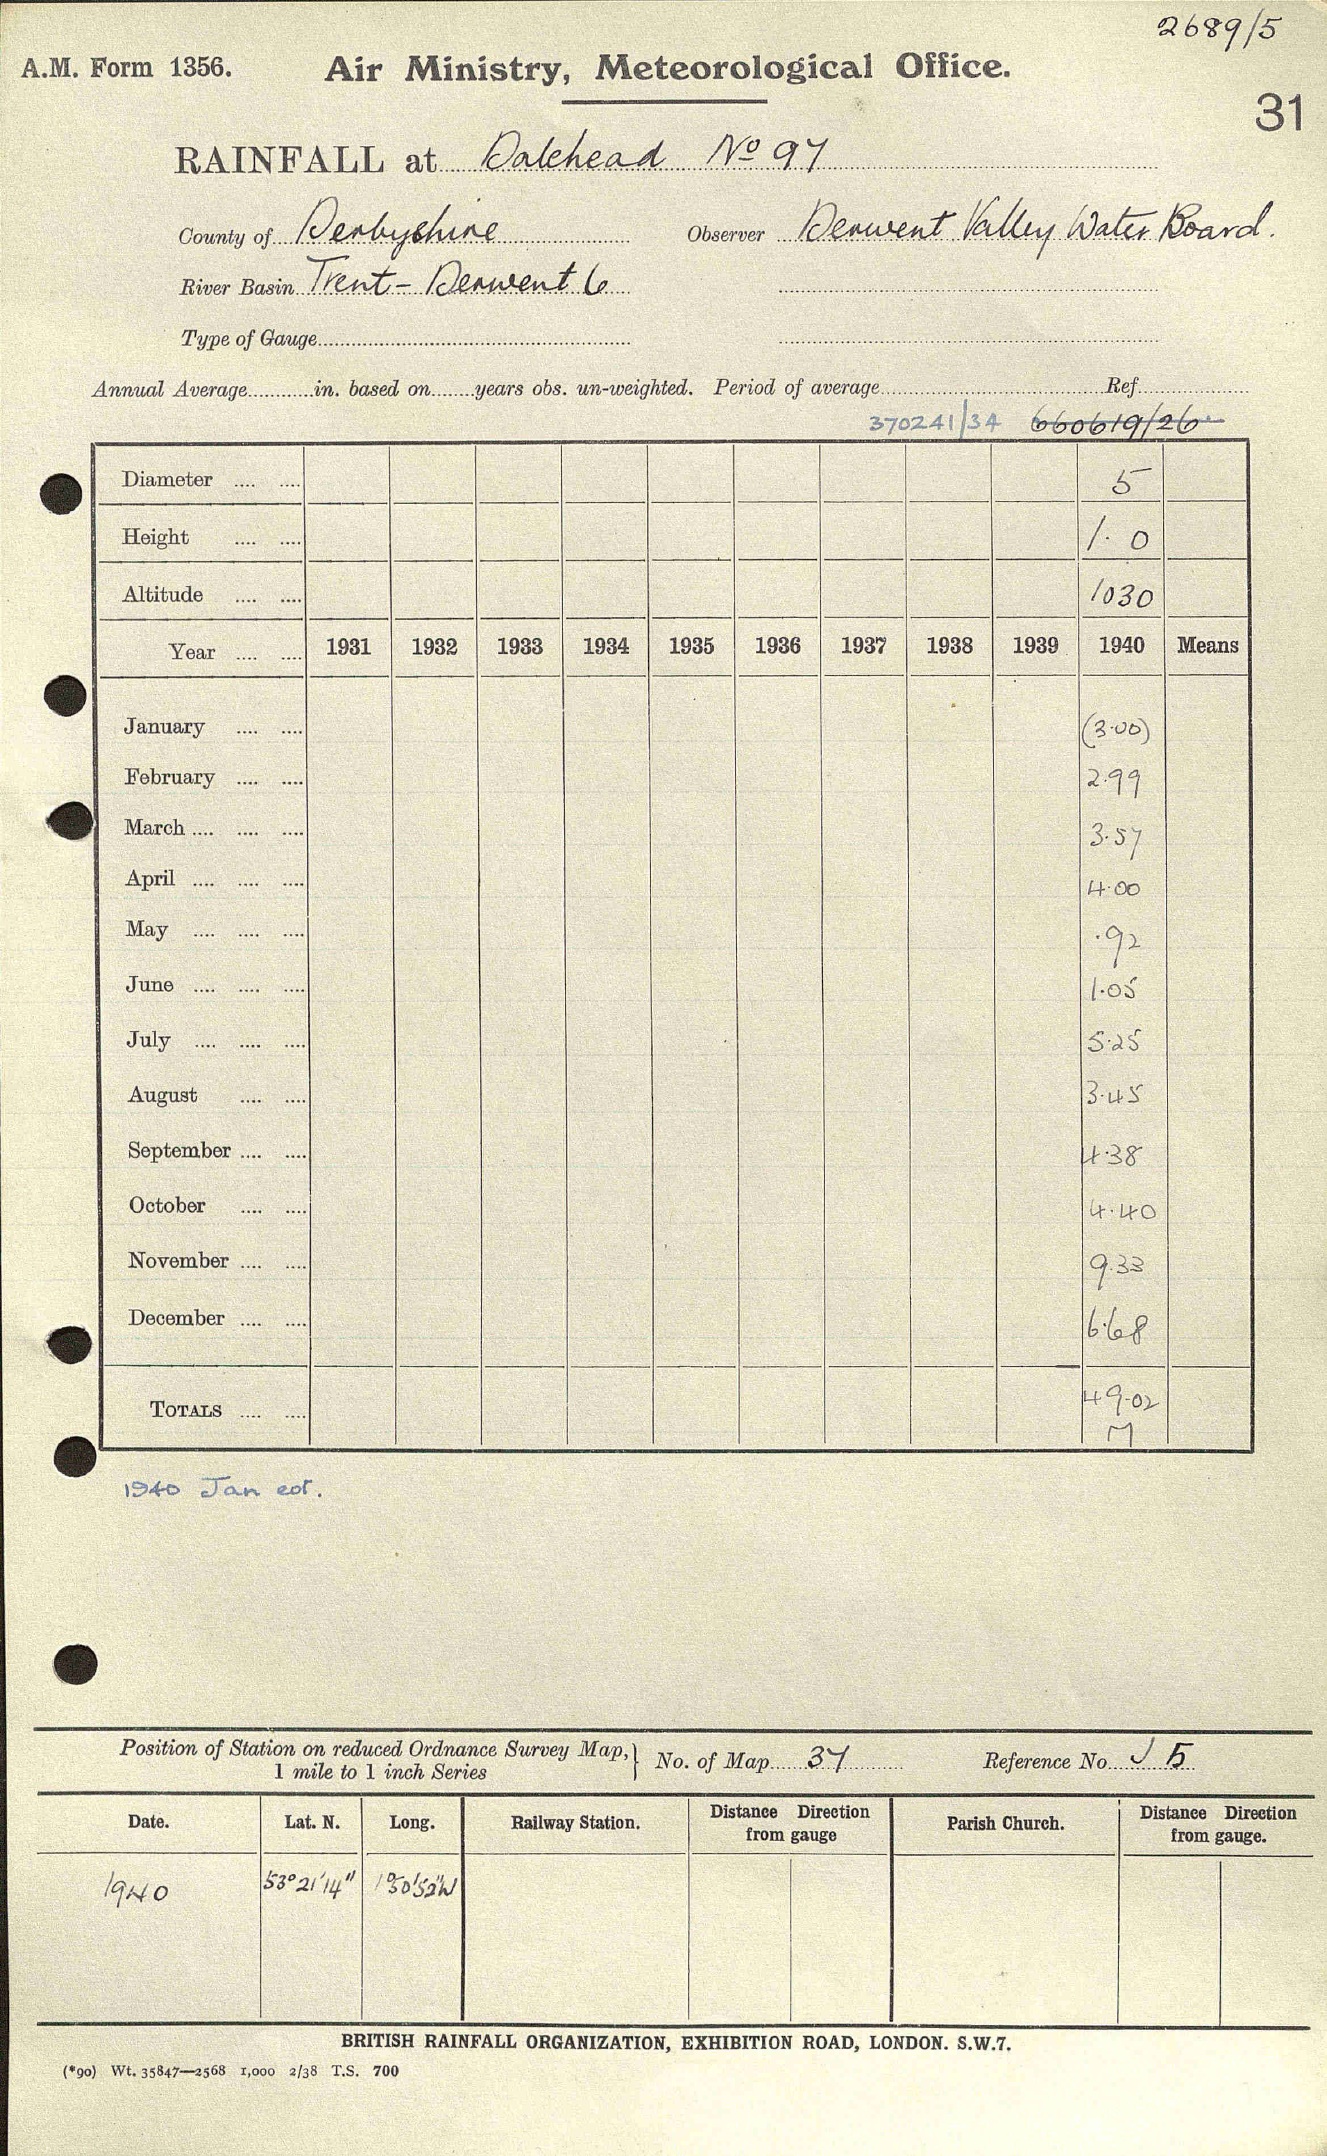 2689/5
A.M. Form 1356. Air Ministry, Meteorological Office.
31
RAINFALL at Dalehead No 97
County of Derbyshire Observer Derwent Valley Water Board.
River Basin Trent - Derwent 6
Type of Gauge
Annual Average in. based on years obs. un-weighted. Period of average Ref.
370241/34 660619/26
Diameter 5
Height 1.0
Altitude 1030
Year 1931 1932 1933 1934 1935 1936 1937 1938 1939 1940 Means
January (3.00)
February 2.99
March 3.57
April 4.00
May .92
June 1.05
July 5.25
August 3.45
September 4.38
October 4.40
November 9.33
December 6.68
TOTALS 49.02
M
1940 Jan est.
Position of Station on reduced Ordnance Survey Map, 1 mile to 1 inch Series } No. of Map 37 Reference No. J 5
Date. Lat. N. Long. Railway Station. Distance Direction from gauge Parish Church. Distance Direction from gauge.
1940 53° 21' 14" 1° 50' 52" W
BRITISH RAINFALL ORGANIZATION, EXHIBITION ROAD, LONDON. S.W.7.
(*90) Wt. 35847—2568 1,000 2/38 T.S. 700